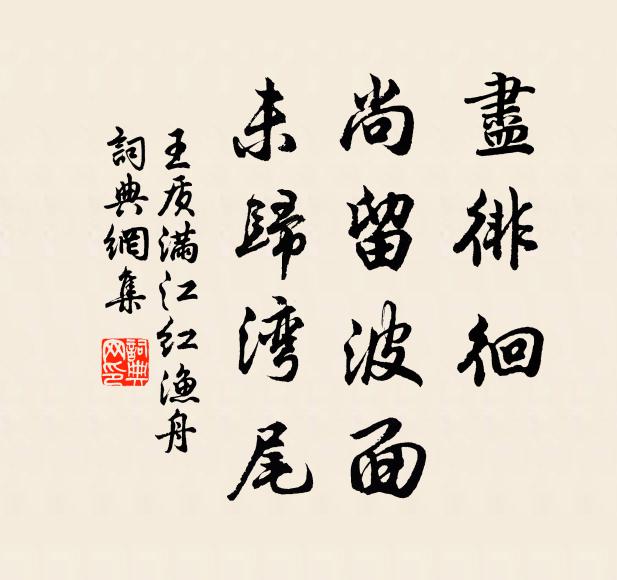 盡徘徊
尚留波面
未歸湾尾
王质满江红渔舟
詞典網集
詞典网印